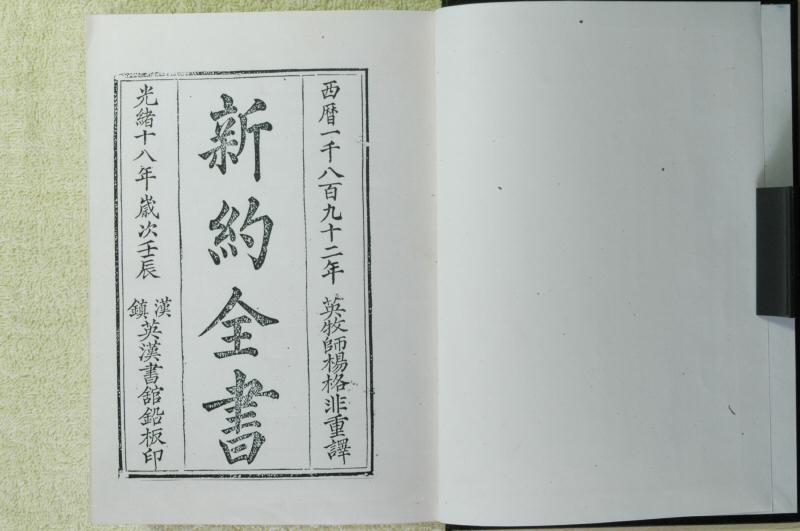 西暦一千八百九十二年 英牧師楊格非重譯
新約全書
光緒十八年歲次壬辰 漢鎮英漢書舘鉛板印